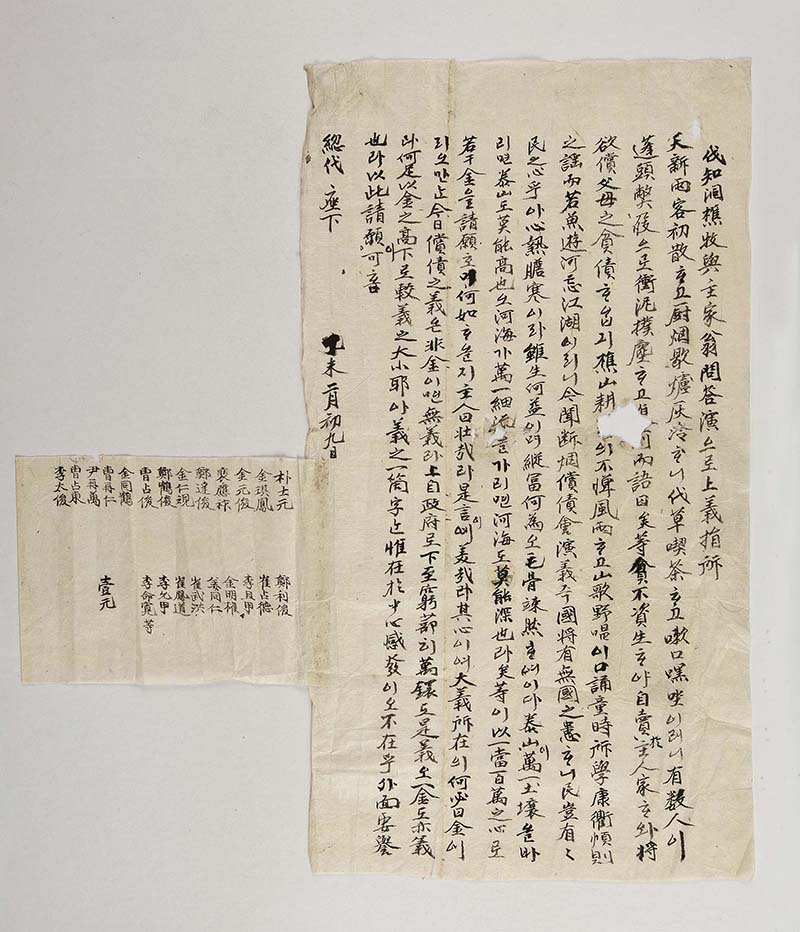 伐知洞樵牧與主家翁問答演으로上義捐所
天新雨客初散고厨烟歇爐灰冷니代草喫茶고嗽口嘿坐이러니有數人이
蓬頭弊屐으로衝泥撲塵고 而語曰矣等貧不資生야自賣於主人家와將
欲償父母之負債 樵山耕 의不憚風雨고山歌野唱이口誦童時所學康衢煩則
之謠而若魚遊河忘江湖이러니今聞断烟償債會演義
국將有無國之患니民豈有
民之心乎아心熱膽寒이라雖生何益이며縱富何為오毛骨竦然
泰山이萬一土壤을
리면泰山도莫能高也오河海가萬一細流를가리면河海도莫能深也라矣等이以一當百萬之心로
若干金을請願 何如 지主人曰壯哉라是言이여美哉라其心이여大義所在의何必曰金이
리오만은今日償債之義은非金이면無義라上自政府로下至窮蔀히萬鐶도是義오一金도亦義
라何足以金之高下로較義之大小耶아義之一箇字는惟在於中心感發이오不在乎外面安營
也라以此請願이可喜
總代 座下
丁未二月初九日
朴士元 鄭利俊
金琪鳳 崔占德
金元俊 李且甲
裵應祚 金明權
鄭達俊 同仁
金仁硯 崔武洪
鄭鶴俊 崔鳳道
曺占俊 李允甲
金同鶴 李命寬 等
曺再仁
尹再萬 壹元
曺占東
李太俊